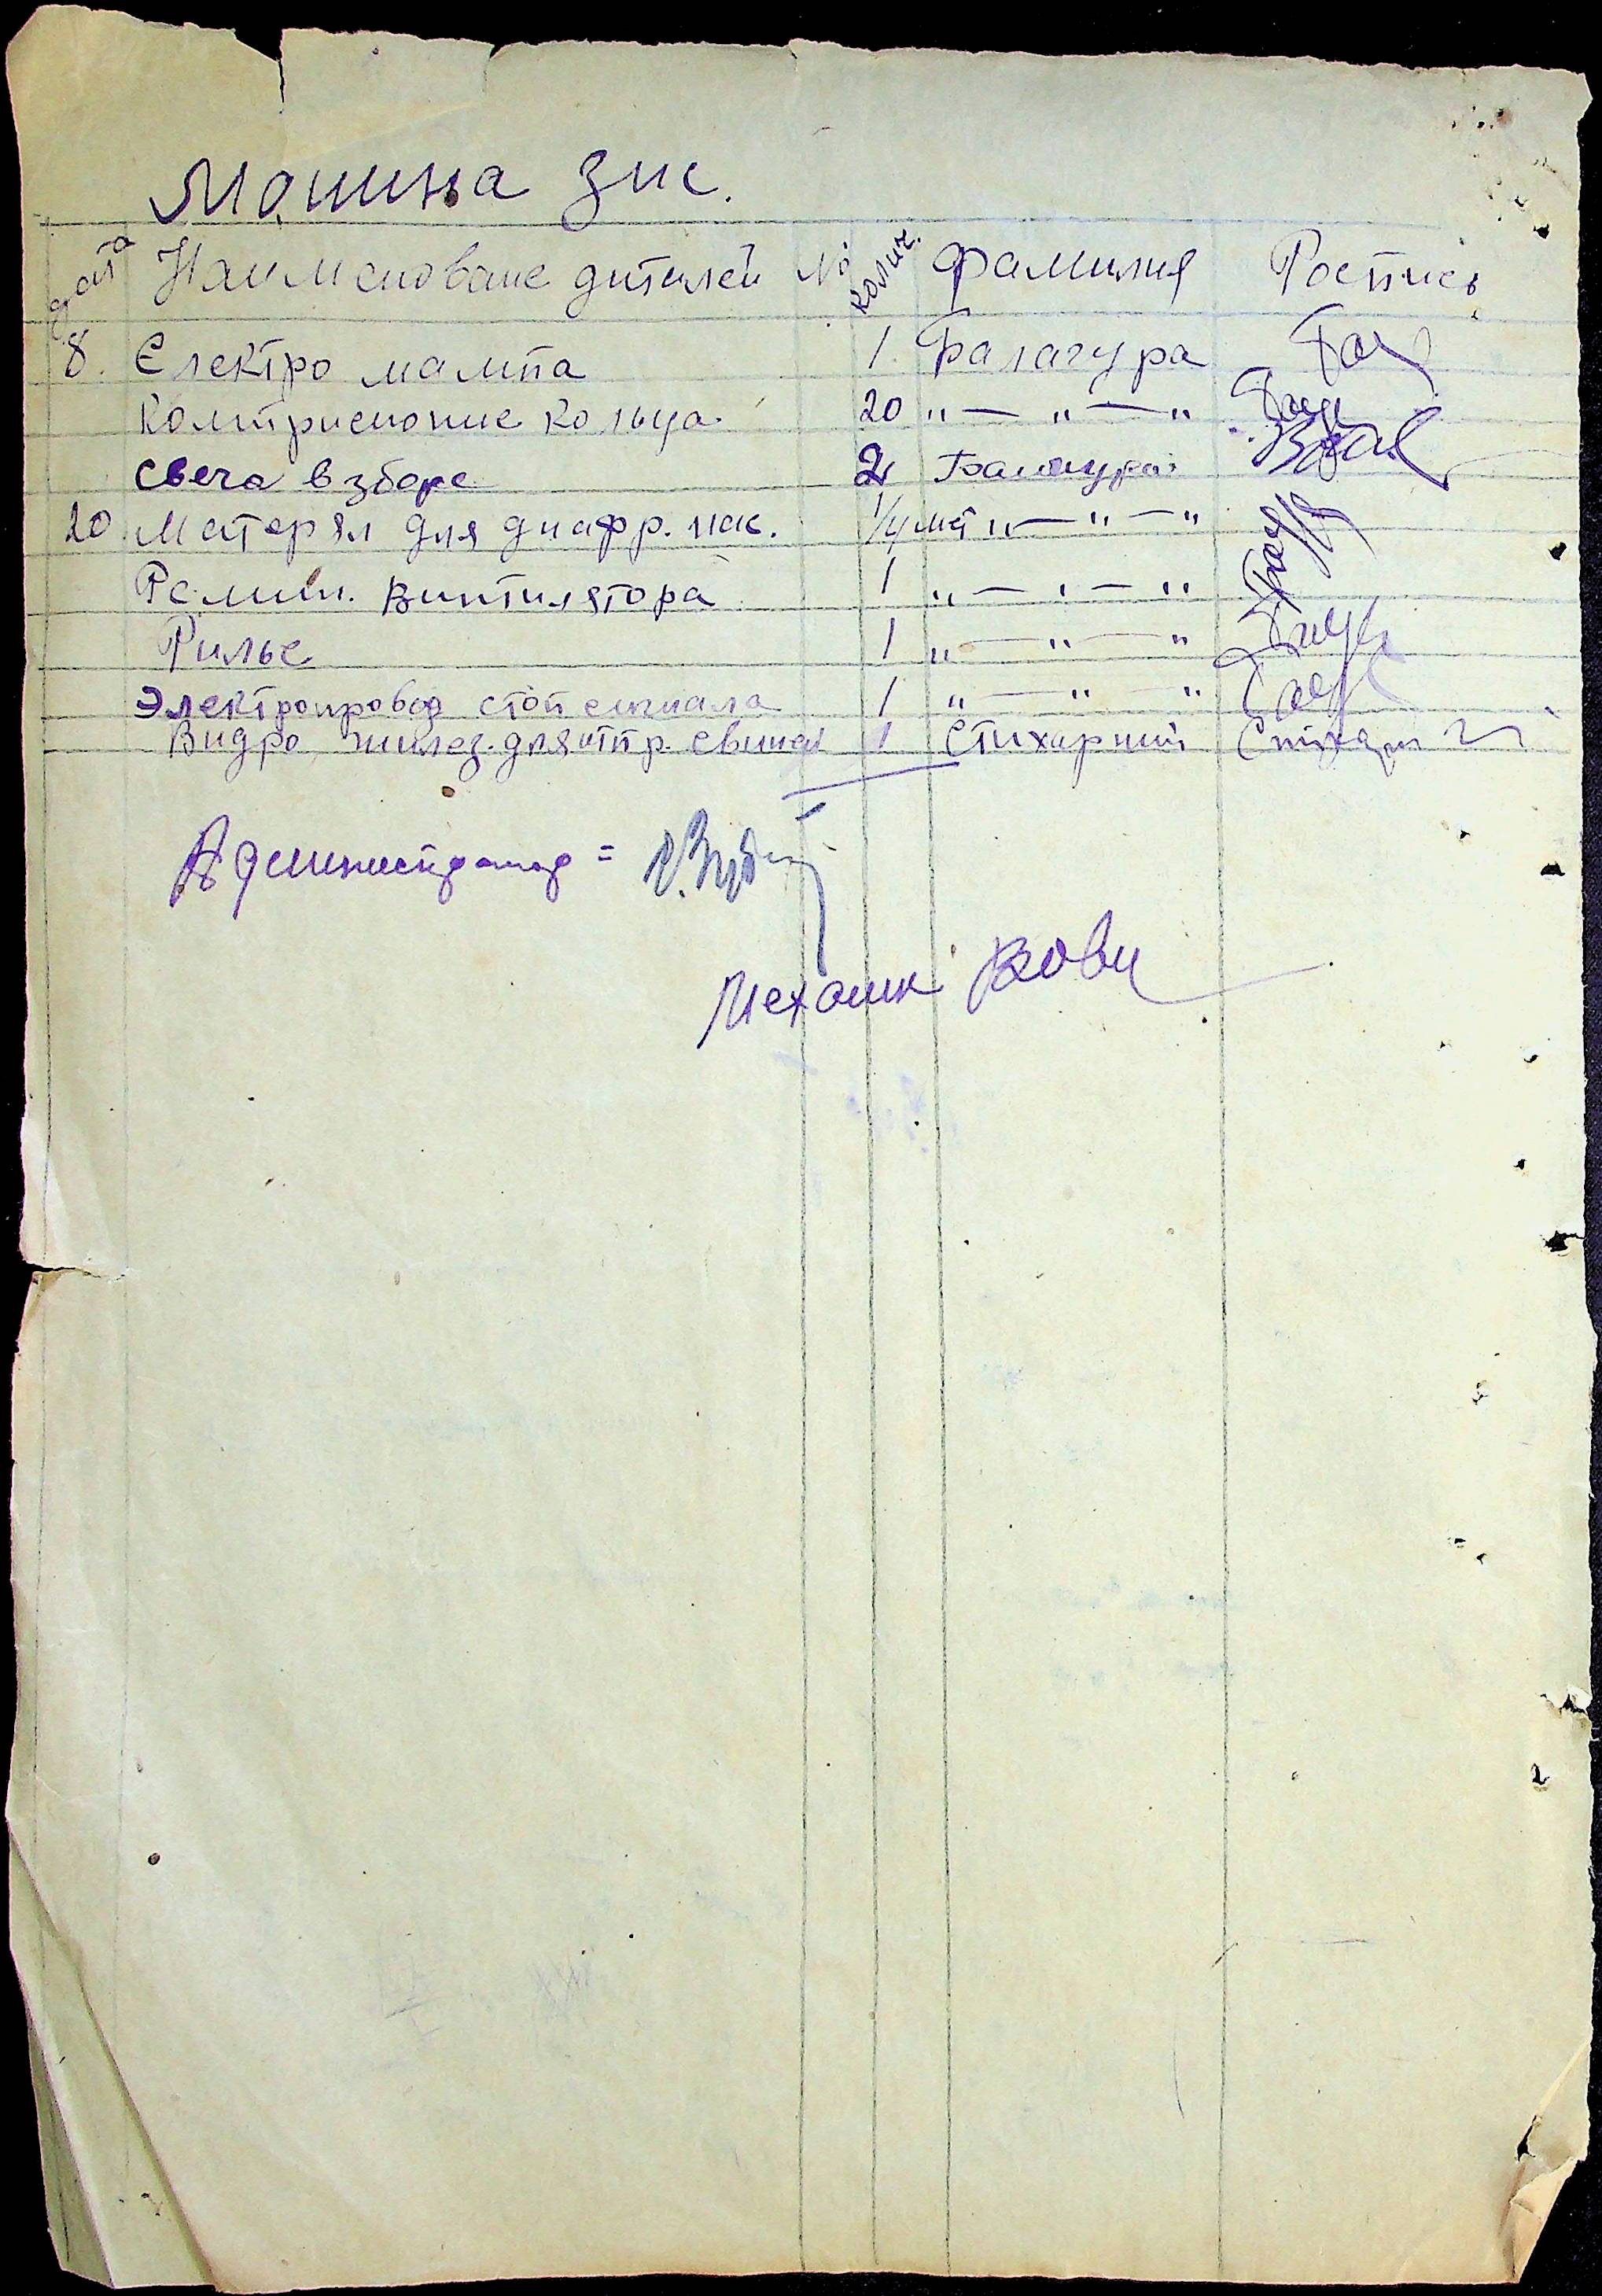 Машина Зис.
дата Наименоване дителей № колич. Фамилия Роспись
8. Електро лампа 1 Балагура
Комприсионие кольца 20 „ — „ — „
Свеча в зборе 2 Балагура
20 Матерял для диафр. нас. 1/4 мет „ — „ — „
Ремин. винтилятора 1 „ — „ — „
Рилье 1 „ — „ — „
Электропровод стоп сигнала 1 „ — „ — „
Видро жилез. для отпр. свиней 1 Стихарний
Администратор =
Механик